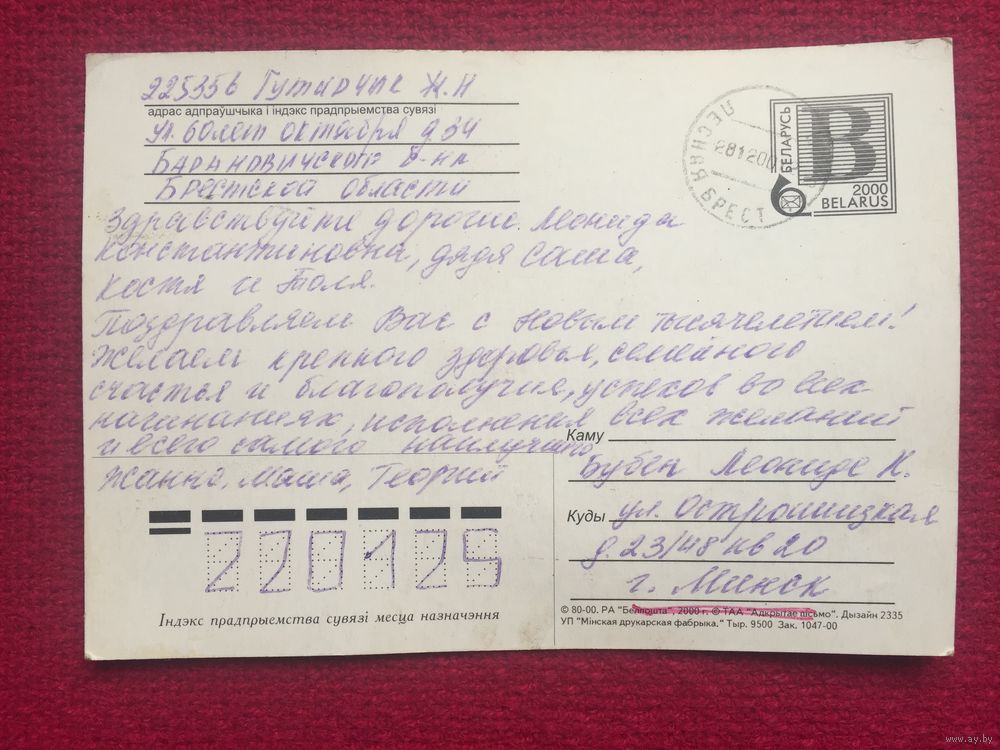 225356 Гутарчик Ж.Н
адрас адпраўшчыка і індэкс прадпрыемства сувязі
ул. 60 лет октября д 34
Барановичского р-на
Брестской области
БЕЛАРУСЬ
B
2000
BELARUS
БРЕСТ
Здравствуйте дорогие Леонида
Константиновна, дядя Саша,
Костя и Толя.
Поздравляем Вас с Новым тысячелетием!
Желаем крепкого здоровья, семейного
счастья и благополучия, успехов во всех
начинаниях, исполнения всех желаний
и всего самого наилучшего
Жанна, Маша, Георгий
Каму
Бубен Леониде К.
Куды ул. Острошицкая
д. 23/48 кв 20
г. Минск
220125
Індэкс прадпрыемства сувязі месца назначэння
© 80-00. РА "Белпошта", 2000 г. © ТАА "Адкрытае пісьмо". Дызайн 2335
УП "Мінская друкарская фабрыка." Тыр. 9500 Зак. 1047-00
www.ay.by